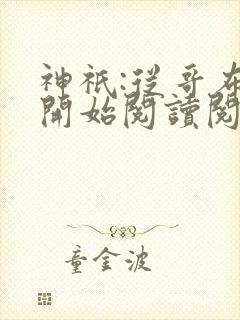 神祇:從哥布
開始閱讀閱
童金波